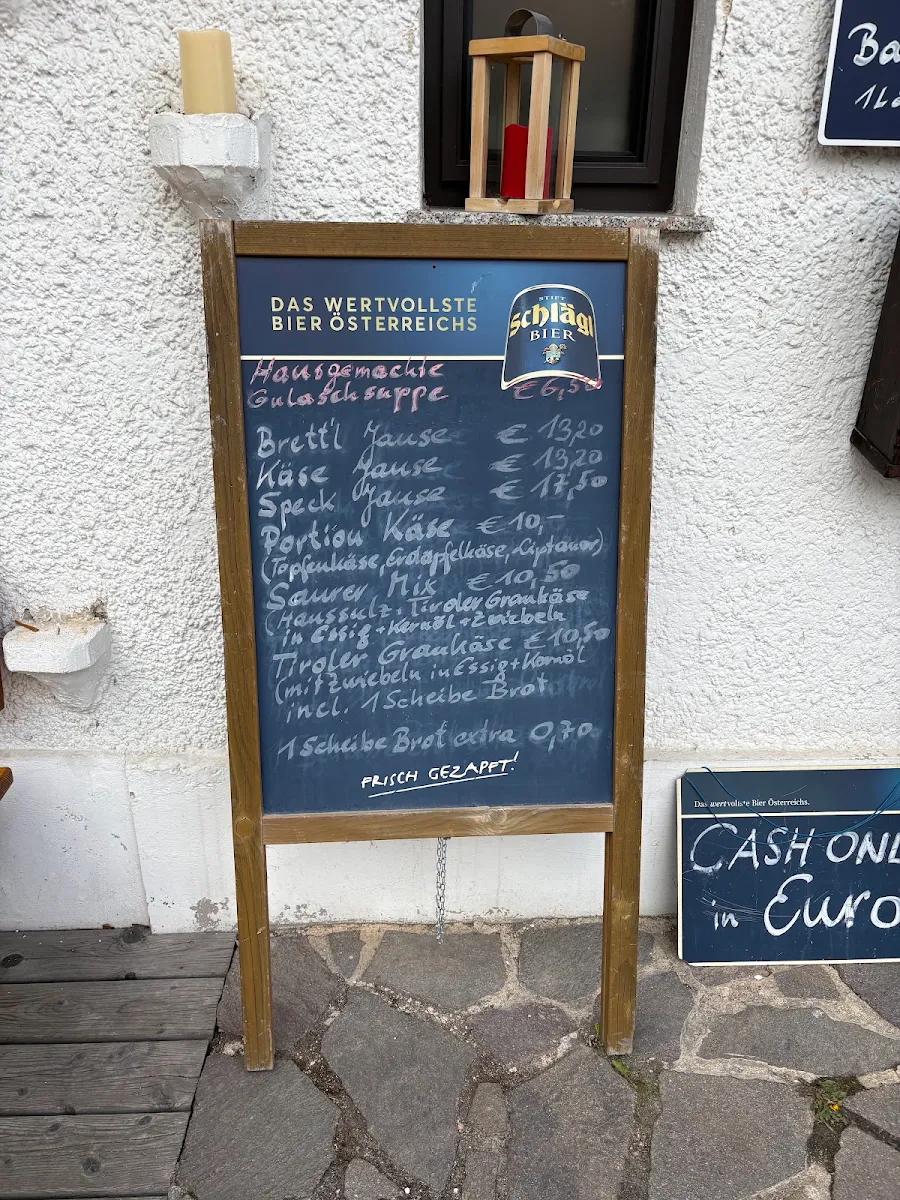 Ba
1L
DAS WERTVOLLSTE
BIER ÖSTERREICHS
STIFT
Schlägl
BIER
Hausgemachte
Gulaschsuppe €6,50
Brett'l Jause € 13,20
Käse Jause € 13,20
Speck Jause € 17,50
Portion Käse €10,-
(Topfenkäse, Erdäpfelkäse, Liptauer)
Saurer Mix €10,50
(Haussulz + Tiroler Graukäse
in Essig + Kernöl + Zwiebeln
Tiroler Graukäse €10,50
(mit Zwiebeln in Essig + Kernöl
incl. 1 Scheibe Brot
1 Scheibe Brot extra 0,70
FRISCH GEZAPFT!
Das wertvollste Bier Österreichs.
CASH ONL
in Euro